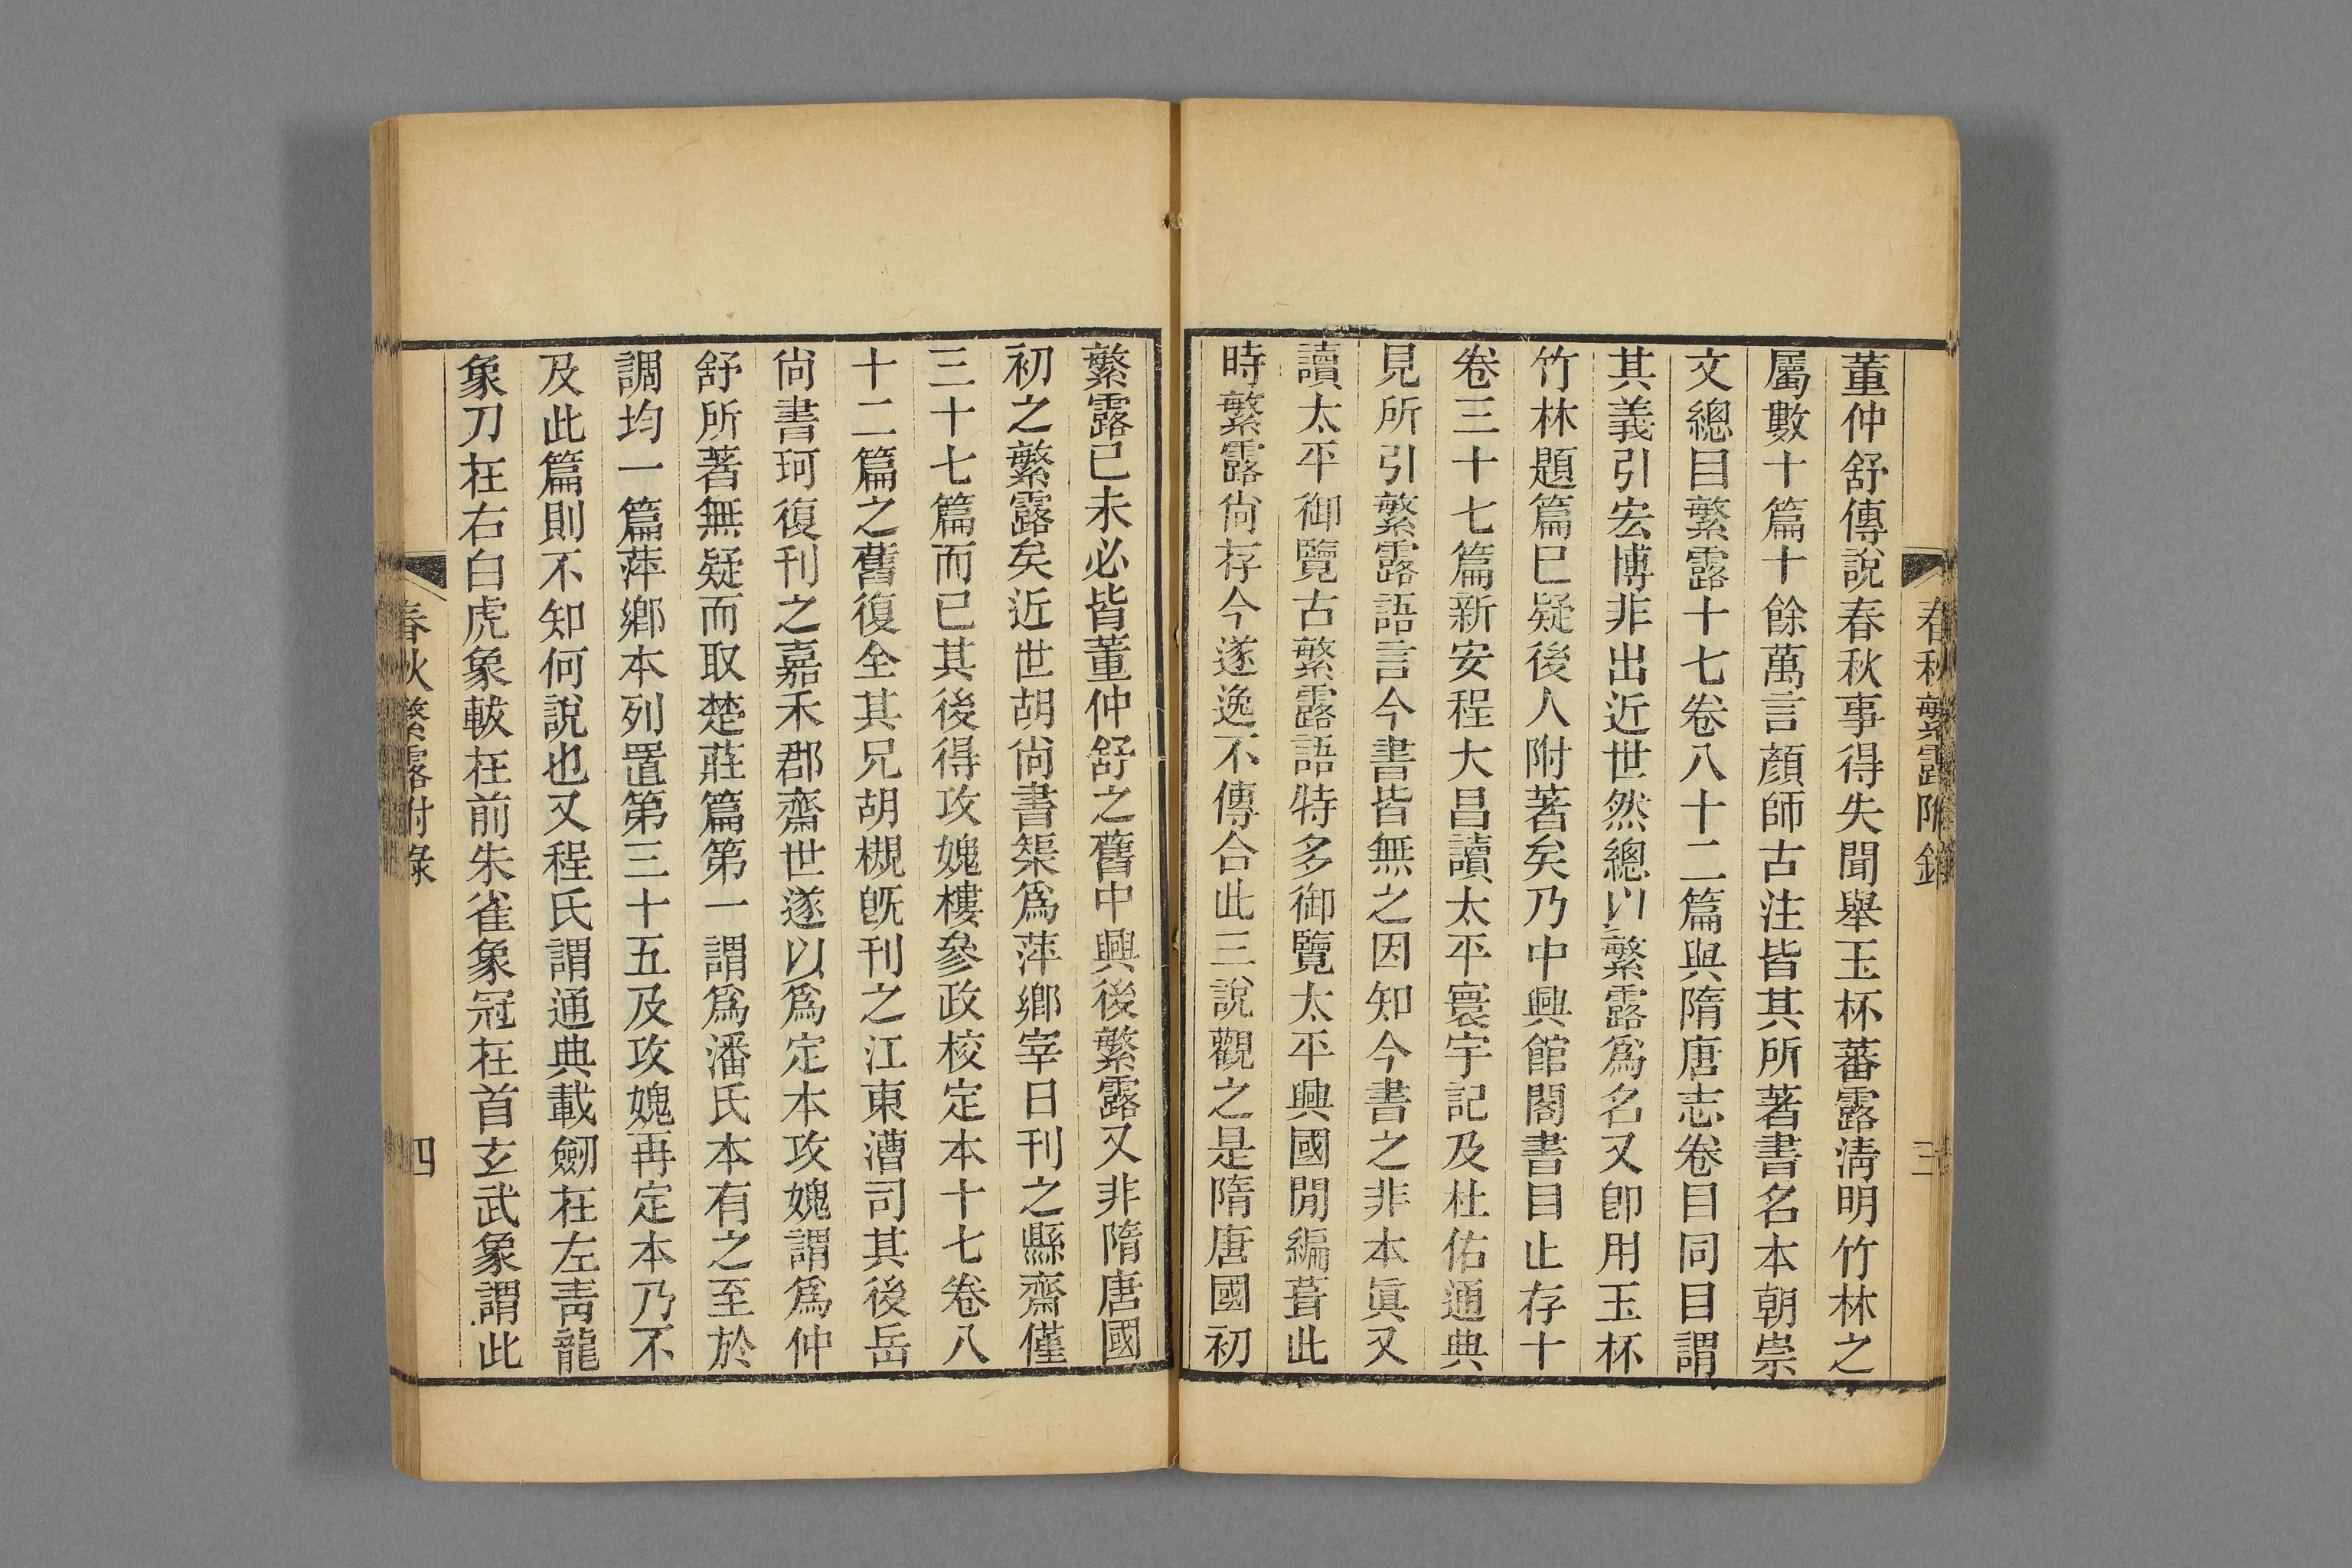 春秋繁露附錄
三
董仲舒傳說春秋事得失聞舉玉杯蕃露淸明竹林之
屬數十篇十餘萬言顏師古注皆其所著書名本朝崇
文總目繁露十七卷八十二篇與隋唐志卷目同目謂
其義引宏博非出近世然總以繁露爲名又卽用玉杯
竹林題篇巳疑後人附著矣乃中興館閣書目止存十
卷三十七篇新安程大昌讀太平寰宇記及杜佑通典
見所引繁露語言今書皆無之因知今書之非本眞又
讀太平御覽古繁露語特多御覽太平興國閒編葺此
時繁露尙存今遂逸不傳合此三說觀之是隋唐國初
繁露已未必皆董仲舒之舊中興後繁露又非隋唐國
初之繁露矣近世胡尙書榘爲萍鄉宰日刊之縣齋僅
三十七篇而已其後得攻媿樓參政校定本十七卷八
十二篇之舊復全其兄胡槻旣刊之江東漕司其後岳
尙書珂復刊之嘉禾郡齋世遂以爲定本攻媿謂爲仲
舒所著無疑而取楚莊篇第一謂爲潘氏本有之至於
調均一篇萍鄉本列置第三十五及攻媿再定本乃不
及此篇則不知何說也又程氏謂通典載劒在左靑龍
象刀在右白虎象韍在前朱雀象冠在首玄武象謂此
春秋繁露附錄
四